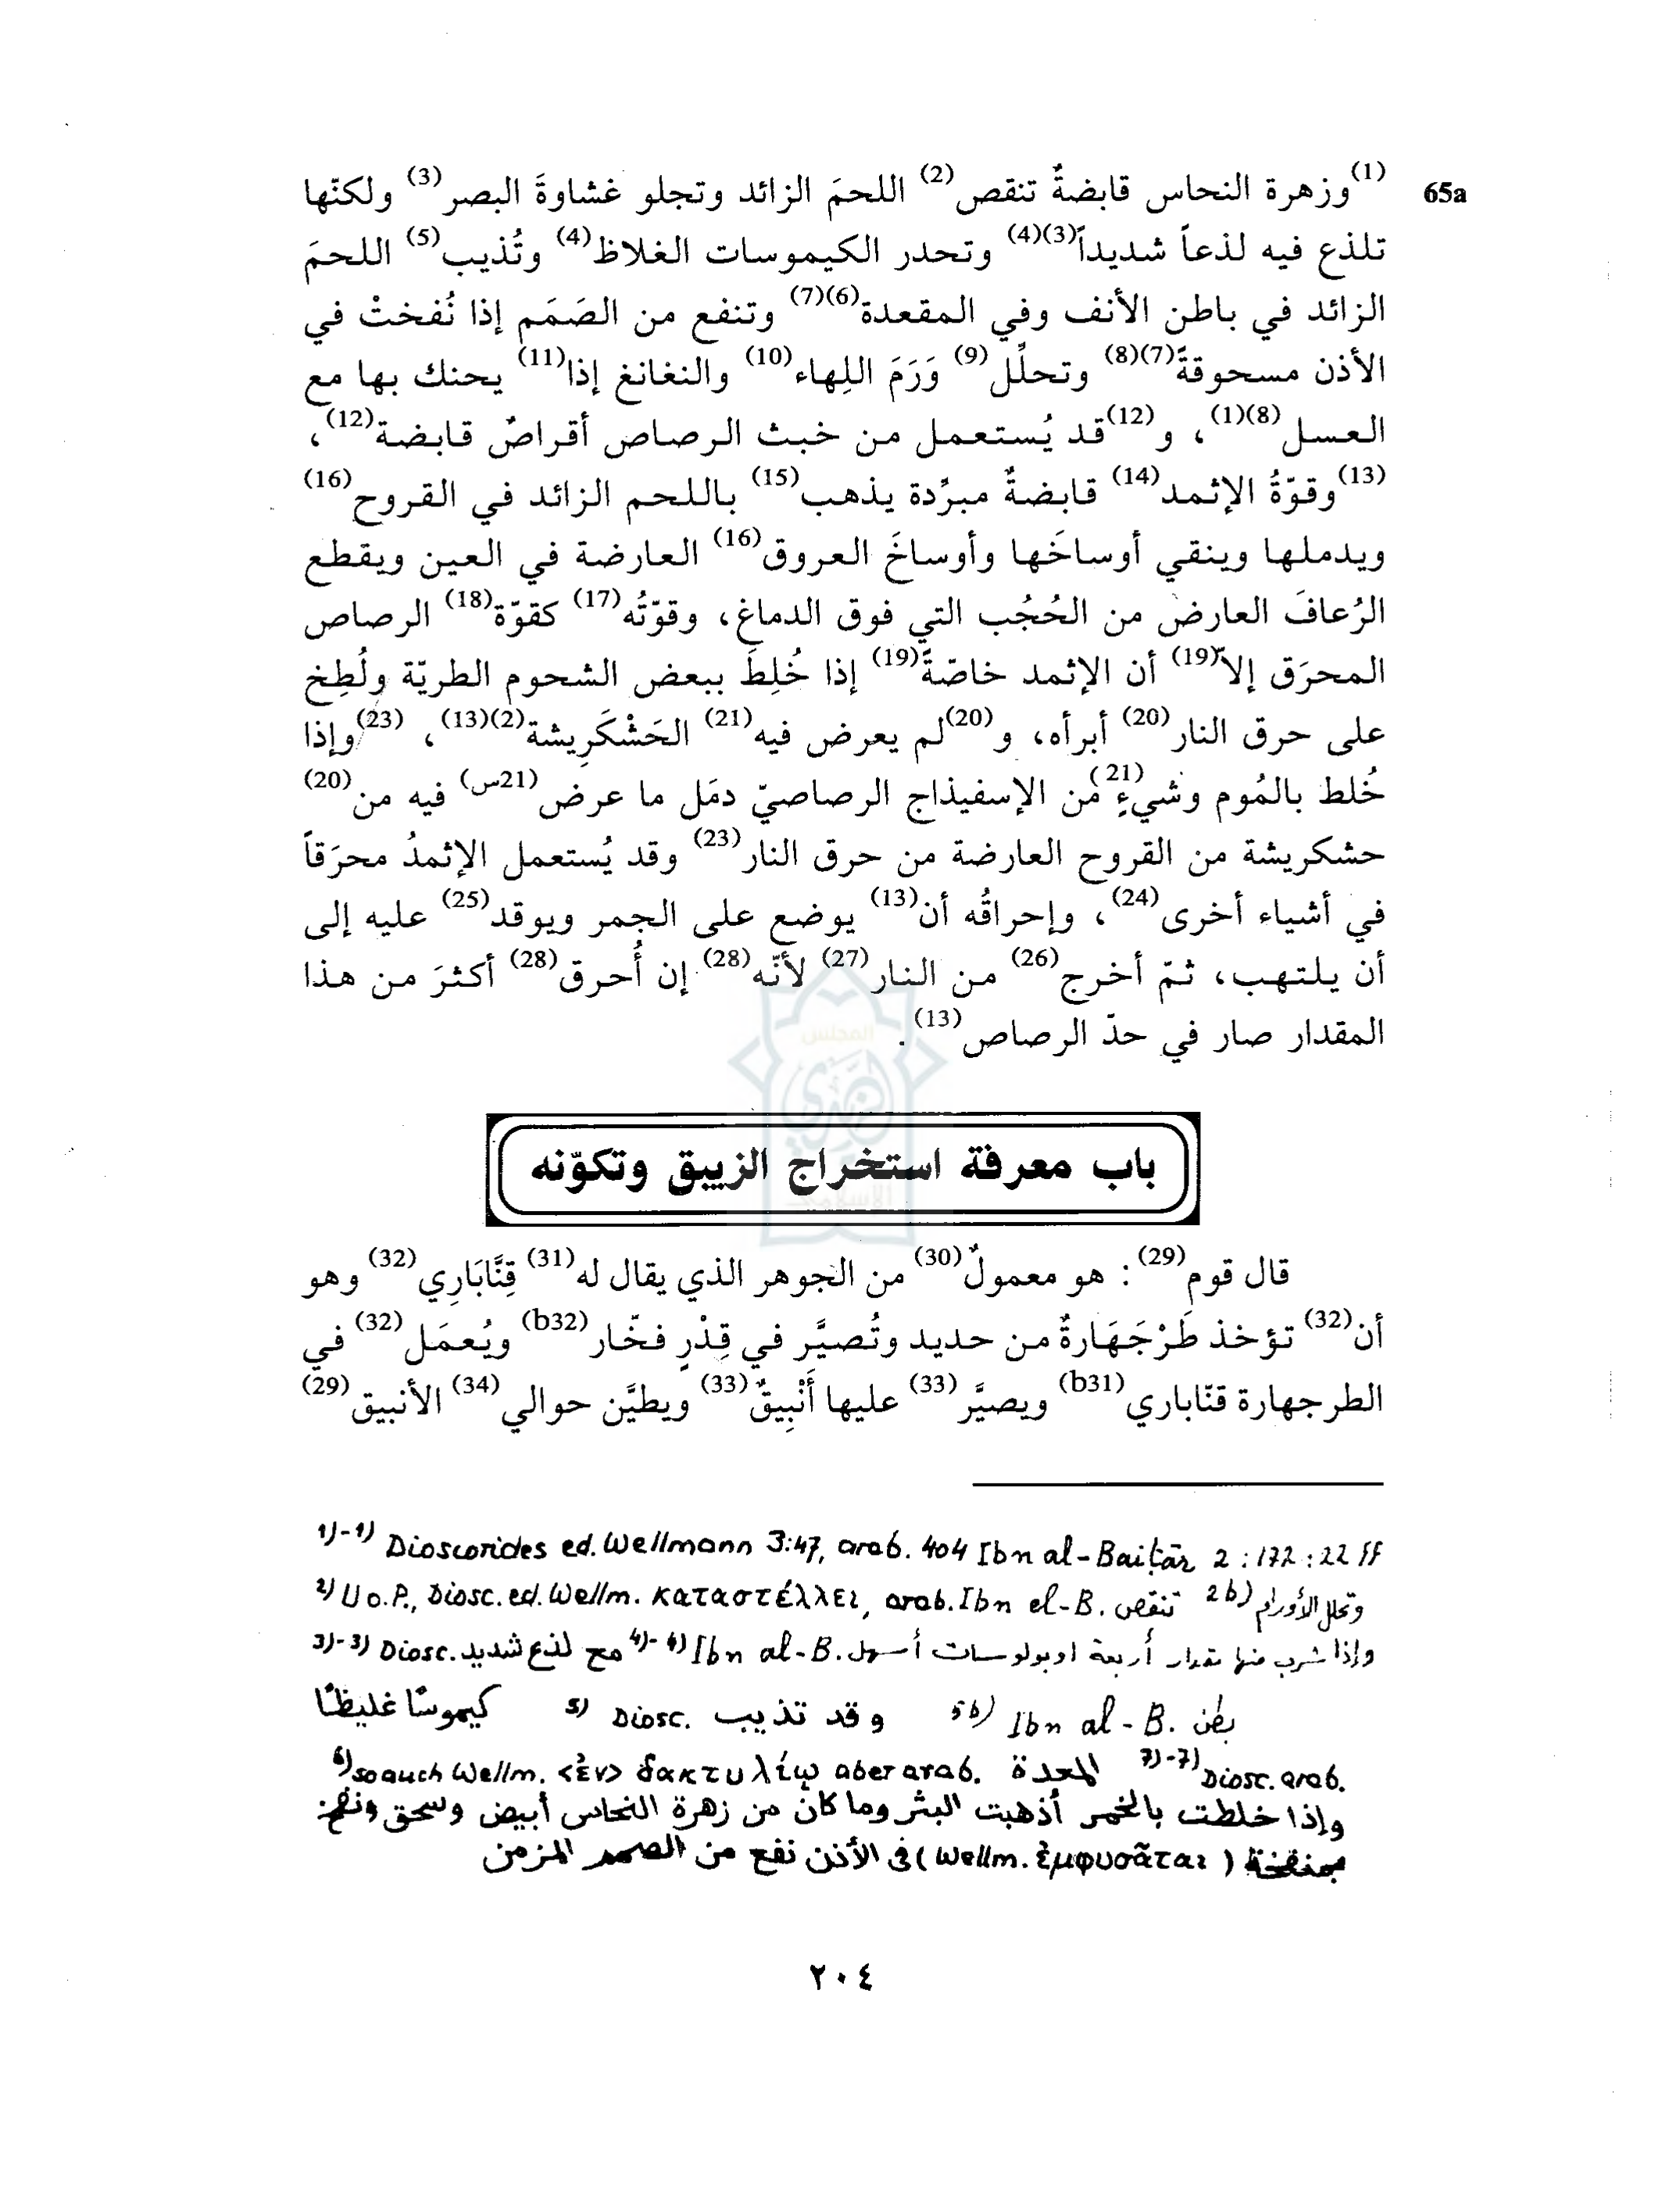 65a (1)وزهرة النحاس قابضةٌ تنقص(2) اللحمَ الزائد وتجلو غشاوةَ البصر(3) ولكنّها
تلذع فيه لذعاً شديداً(3)(4) وتحدر الكيموسات الغلاظ(4) وتُذيب(5) اللحمَ
الزائد في باطن الأنف وفي المقعدة(6)(7) وتنفع من الصَمَم إذا نُفختْ في
الأذن مسحوقةً(7)(8) وتحلِّل(9) وَرَمَ اللِهاء(10) والنغانغ إذا(11) يحنك بها مع
العسل(8)(1)، و(12)قد يُستعمل من خبث الرصاص أقراصٌ قابضة(12)،
(13)وقوّةُ الإثمد(14) قابضةٌ مبرِّدة يذهب(15) باللحم الزائد في القروح(16)
ويدملها وينقي أوساخَها وأوساخَ العروق(16) العارضة في العين ويقطع
الرُعافَ العارض من الحُجُب التي فوق الدماغ، وقوّتُه(17) كقوّة(18) الرصاص
المحرَق إلاّ(19) أن الإثمد خاصّةً(19) إذا خُلِطَ ببعض الشحوم الطريّة ولُطِخ
على حرق النار(20) أبرأه، و(20)لم يعرض فيه(21) الحَشْكَرِيشة(2)(13)، (23)وإذا
خُلط بالمُوم وشيءٍ(21) من الإسفيذاج الرصاصيّ دمَل ما عرض(21س) فيه من(20)
حشكريشة من القروح العارضة من حرق النار(23) وقد يُستعمل الإثمدُ محرَقاً
في أشياء أخرى(24)، وإحراقُه أن(13) يوضع على الجمر ويوقد(25) عليه إلى
أن يلتهب، ثمّ أخرج(26) من النار(27) لأنّه(28) إن أُحرق(28) أكثرَ من هذا
المقدار صار في حدّ الرصاص(13).
باب معرفة استخراج الزيبق وتكوّنه
قال قوم(29): هو معمولٌ(30) من الجوهر الذي يقال له(31) قِنَّابَارِي(32) وهو
أن(32) تؤخذ طَرْجَهَارةٌ من حديد وتُصيَّر في قِدْرٍ فخّار(b32) ويُعمَل(32) في
الطرجهارة قنّاباري(b31) ويصيَّر(33) عليها أَنْبِيقٌ(33) ويطيَّن حوالي(34) الأنبيق(29)
1)-1) Dioscorides ed. Wellmann 3:47, arab. 404 Ibn al-Baiṭār 2:172:22 ff
2) U o.P., Diosc. ed. Wellm. καταστέλλει, arab. Ibn el-B. تنقص 2b) وتحلل الأورام
3)-3) Diosc. مع لذع شديد 4)-4) Ibn al-B. وإذا شرب منها مقدار أربعة اوبولوسات أسهل
كيموسًا غليظًا 5) Diosc. وقد تذيب 5b) Ibn al-B. بطن
6) so auch Wellm. <ἐν> δακτυλίῳ aber arab. المعدة 7)-7) Diosc. arab.
وإذا خلطت بالخمر أذهبت البثر وما كان من زهرة النحاس أبيض وسحق ونفخ
بمنفخة (Wellm. ἐμφυσᾶται) في الأذن نفع من الصمم المزمن
٢٠٤